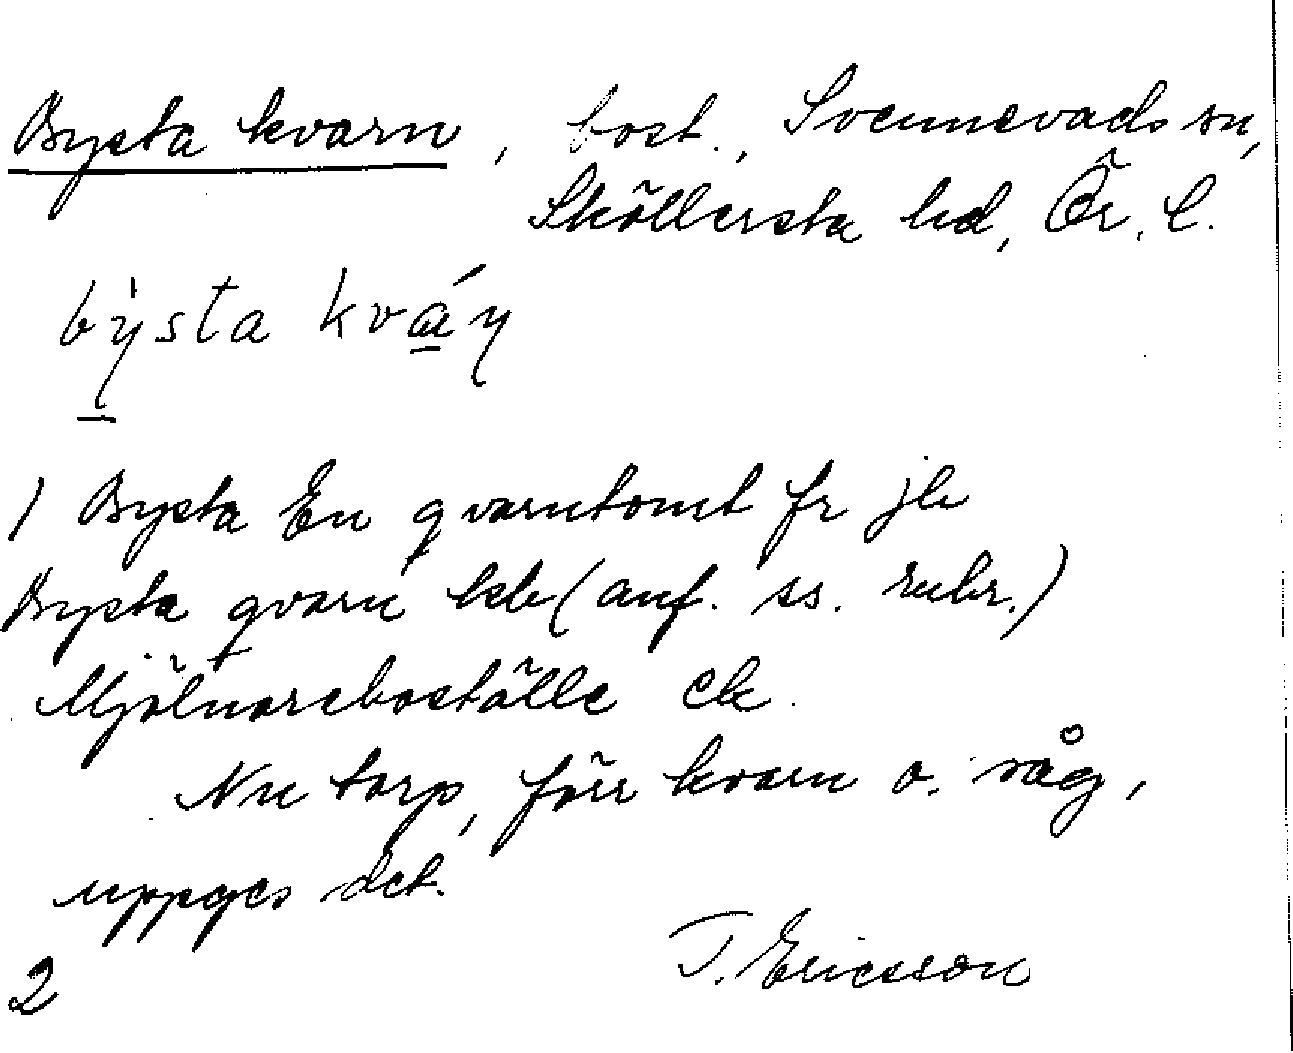 Bysta kvarn, bost., Svennevads sn,
Sköllersta hd, Ör. l.
bẏ̱sta kvá̱ṇ
1 Bysta En qvarntomt fr jb
Bysta qvarn hb (anf. ss. rubr.)
Mjölnareboställe ek.
Nu torp, förr kvarn o. såg,
uppges det.
T. Ericsson
2